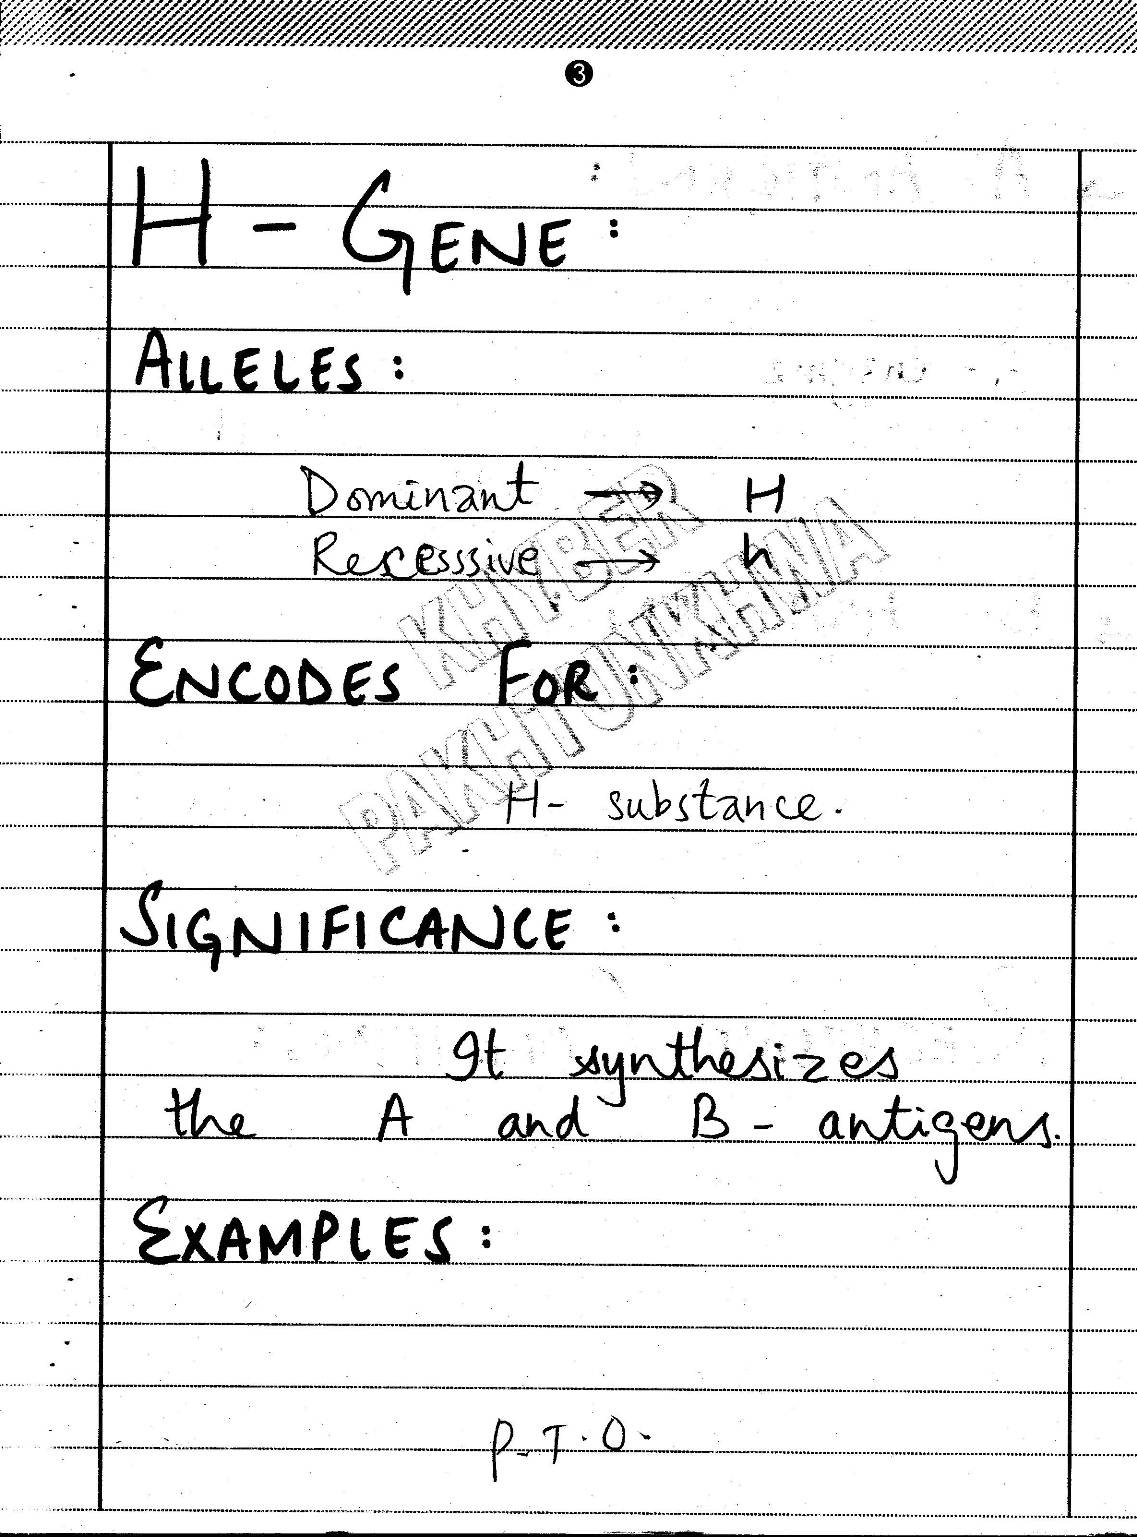 3
H - GENE :
ALLELES :
Dominant → H
Recesssive → h
KHYBER
PAKHTUNKHWA
ENCODES FOR :
H- substance.
SIGNIFICANCE :
It synthesizes
the A and B - antigens.
EXAMPLES :
P.T.O.